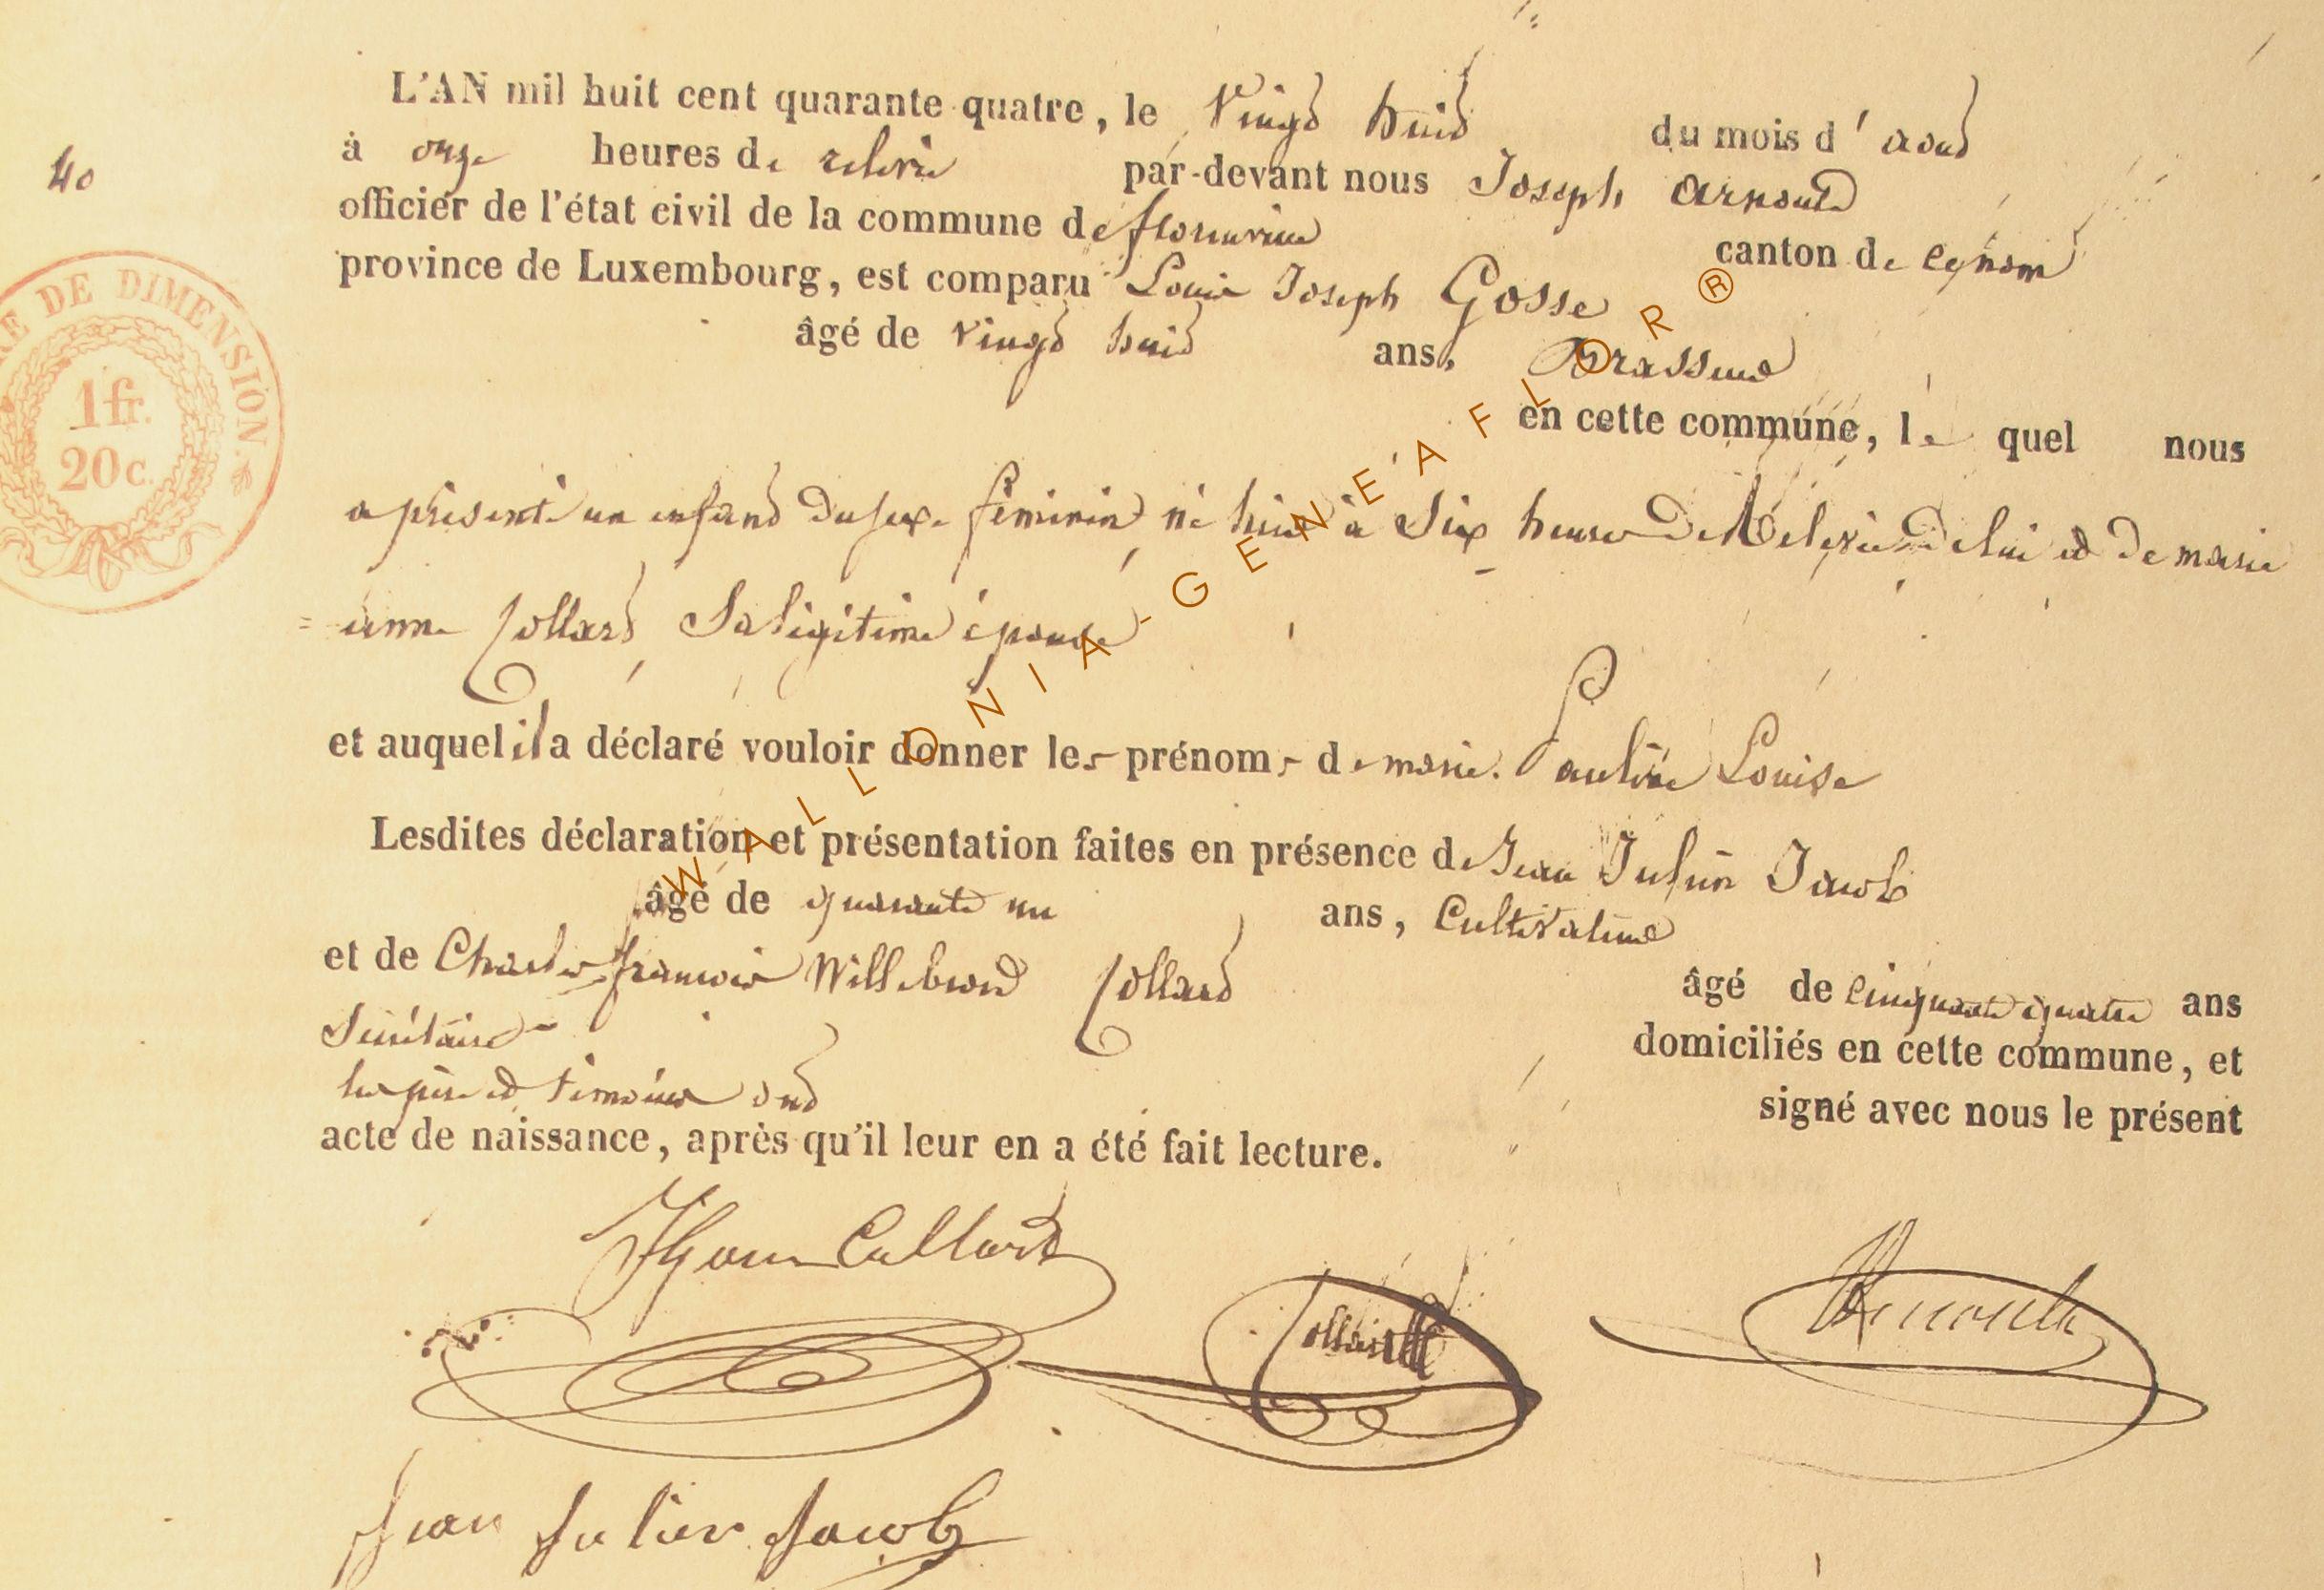 L'AN mil huit cent quarante quatre, le Vingt huit du mois d'août
40
à onze heures de relevée par-devant nous Joseph Arnould
officier de l'état civil de la commune de florenville canton de
province de Luxembourg, est comparu Louis Joseph Gosse
âgé de vingt huit ans, Brasseur
en cette commune, le quel nous
a présenté un enfant du sexe féminin né hier à Six heures de Relevée de lui et de marie
anne Collard, Sa légitime épouse
et auquel il a déclaré vouloir donner les prénoms de marie Pauline Louise
Lesdites déclaration et présentation faites en présence de Jean Julien Jacob
âgé de quarante un ans, Cultivateur
et de Charles françois Willebrord Collard
âgé de cinquante quatre ans
Secrétaire domiciliés en cette commune, et
les père et témoins ont signé avec nous le présent
acte de naissance, après qu'il leur en a été fait lecture.
Collard
Collard Arnould
Jean Julien Jacob
DE DIMENSION
1 fr.
20 c.
WALLONIA-GENEAFLOR ®